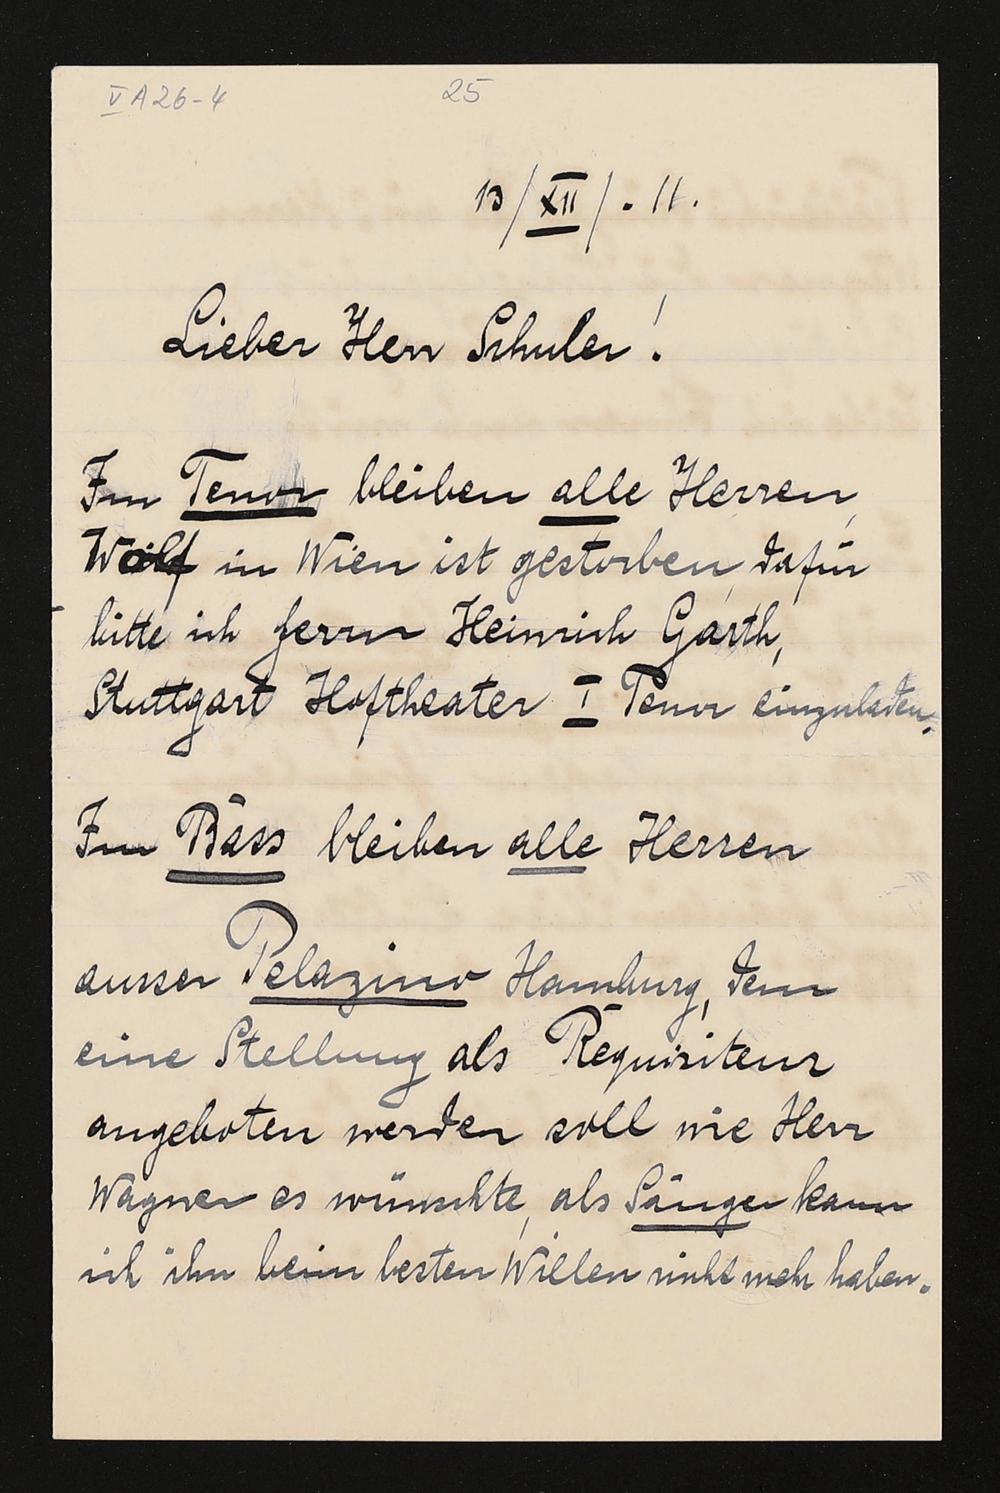 V A 26-4
25
13/XII/. 11.
Lieber Herr Schuler!
Im Tenor bleiben alle Herren,
Wölf in Wien ist gestorben, dafür
bitte ich Herrn Heinrich Garth,
Stuttgart Hoftheater I Tenor einzuladen.
Im Bass bleiben alle Herren
ausser Pelazino Hamburg, dem
eine Stellung als Requisiteur
angeboten werden soll wie Herr
Wagner es wünschte, als Sänger kann
ich ihn beim besten Willen nicht mehr haben.